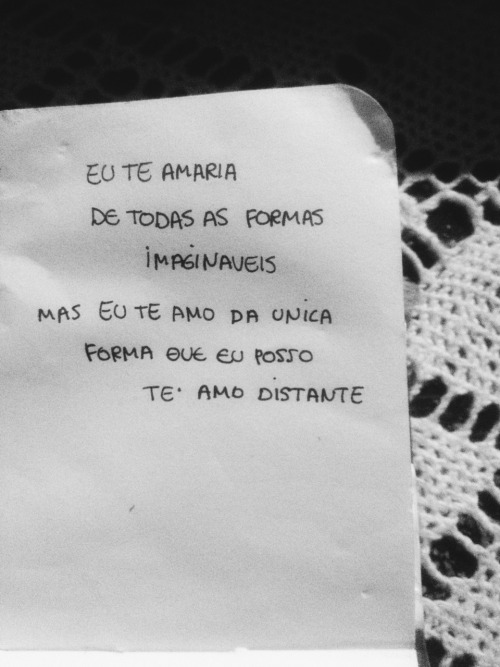 EU TE AMARIA
DE TODAS AS FORMAS
IMAGINAVEIS
MAS EU TE AMO DA UNICA
FORMA QUE EU POSSO
TE· AMO DISTANTE